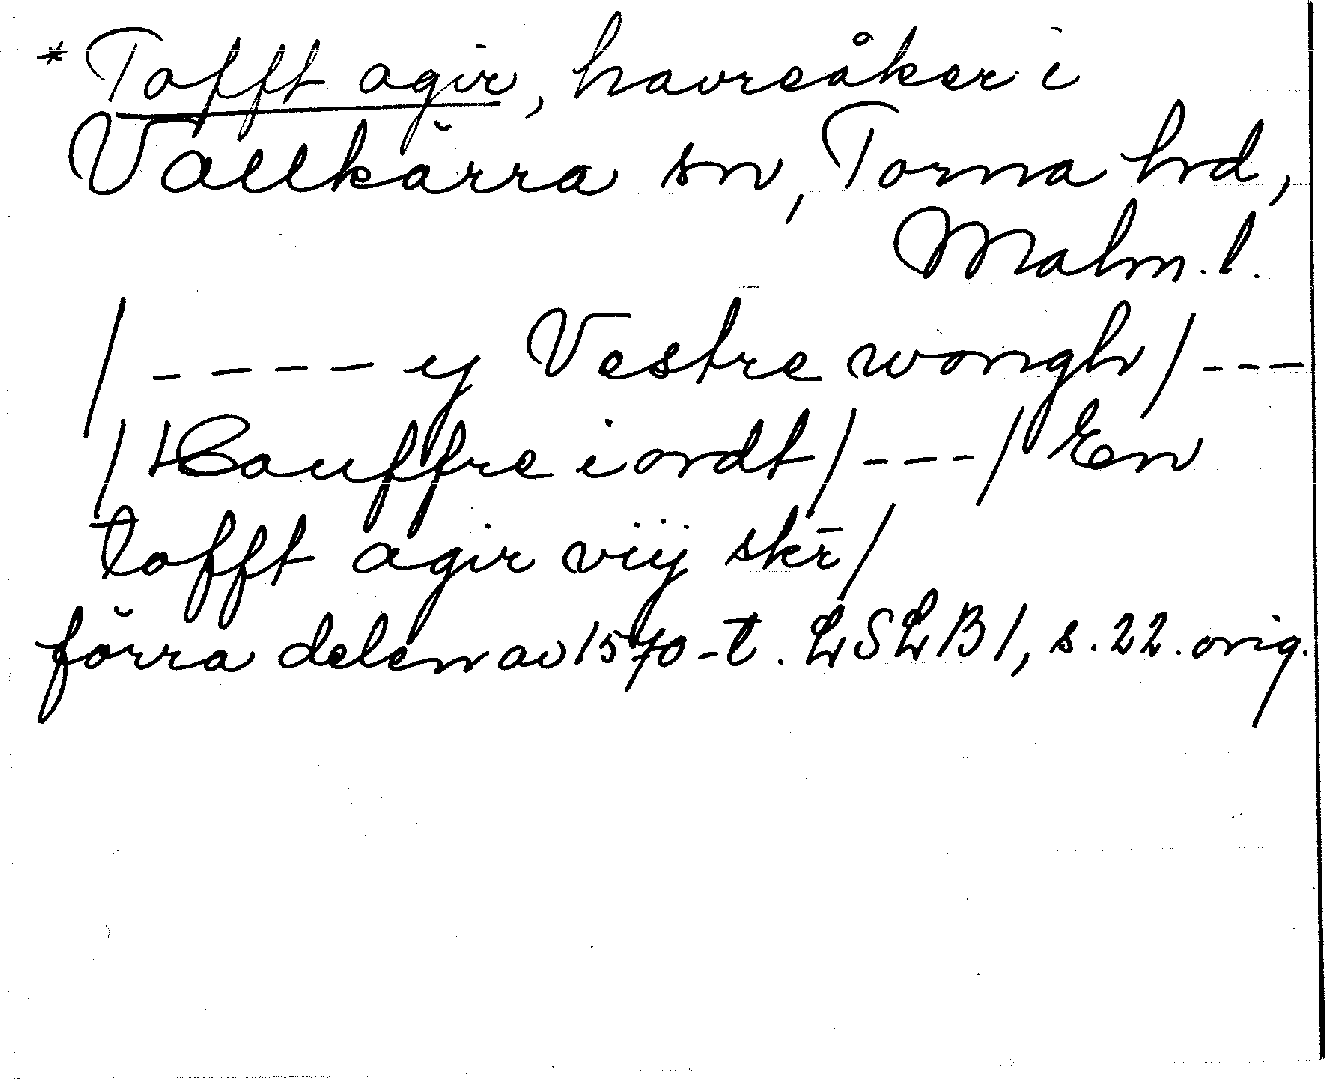 * Tofft agir, havreåker i
Vallkärra sn, Torna hd,
Malm. l.
/ ---- y Vestre wongh / ---
/ Hauffre iordt / --- / En
tofft agir viij skr̄ /
förra delen av 1570-t. LSLB 1, s. 22. orig.